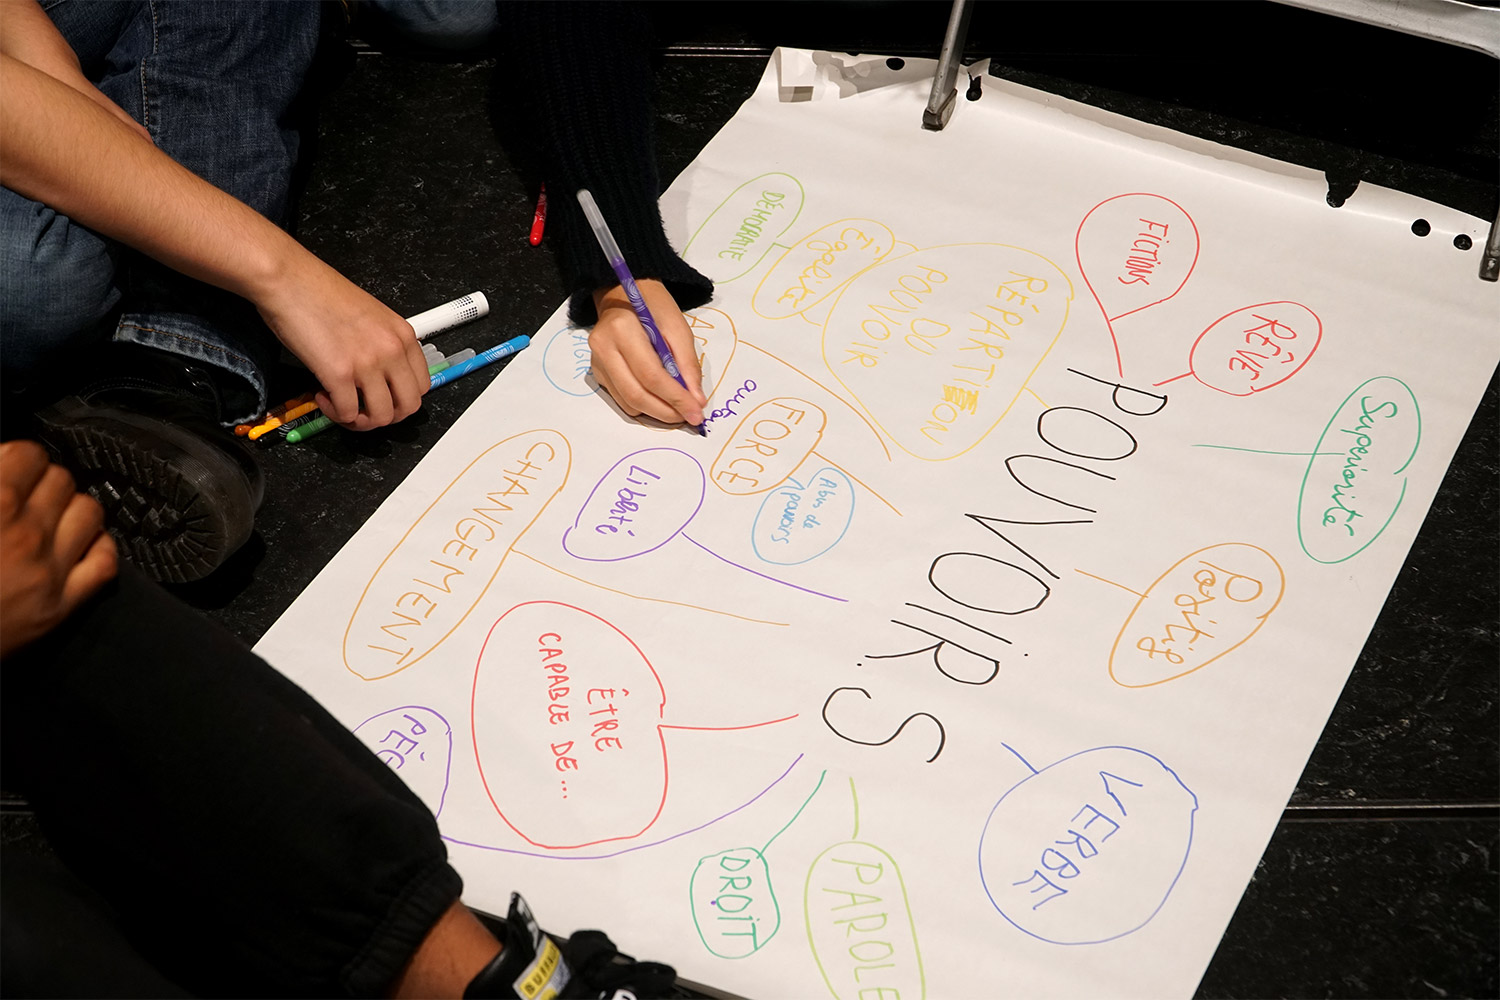 POUVOIR.S
FICTIONS
RÊVE
Superiorité
Positif
VERBE
PAROLE
DROIT
ÊTRE
CAPABLE DE...
CHANGEMENT
Liberté
Abus de
pouvoirs
FORCE
AGIR
RÉPARTITION
DU
POUVOIR
Égalité
DÉMOCRATIE